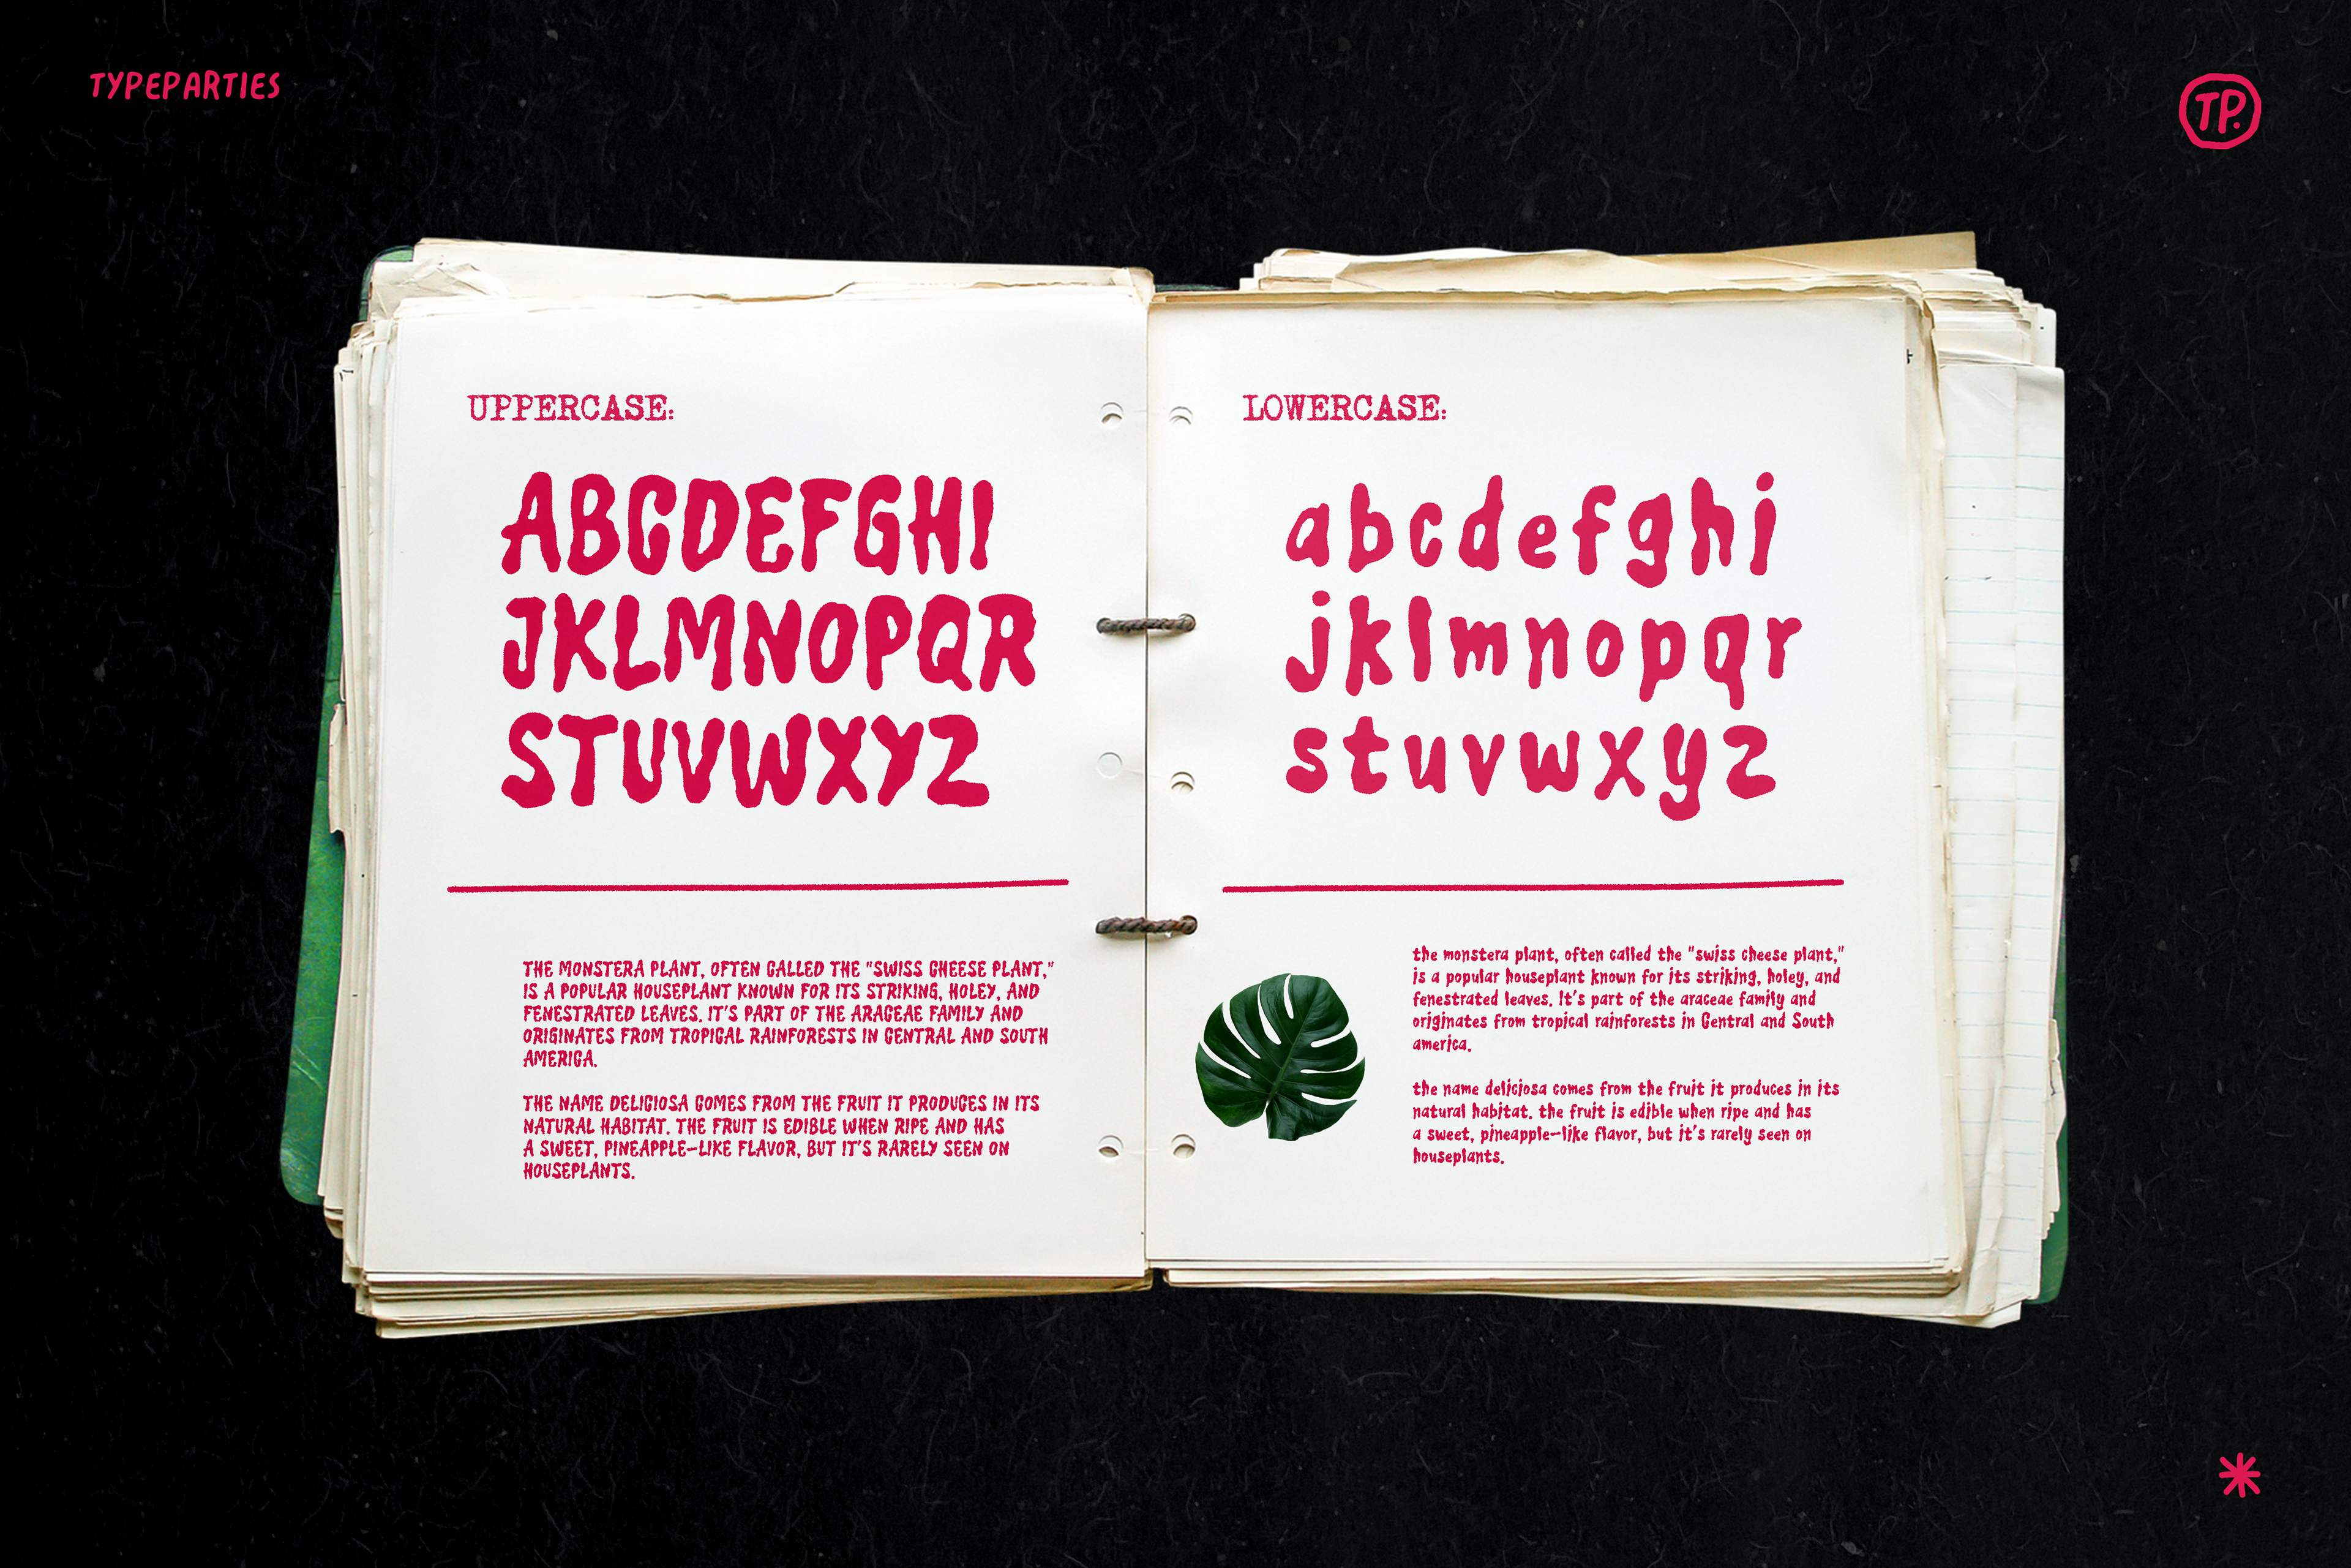 TYPEPARTIES
TP.
UPPERCASE:
ABCDEFGHI
JKLMNOPQR
STUVWXYZ
THE MONSTERA PLANT, OFTEN CALLED THE "SWISS CHEESE PLANT,"
IS A POPULAR HOUSEPLANT KNOWN FOR ITS STRIKING, HOLEY, AND
FENESTRATED LEAVES. IT'S PART OF THE ARACEAE FAMILY AND
ORIGINATES FROM TROPICAL RAINFORESTS IN CENTRAL AND SOUTH
AMERICA.
THE NAME DELICIOSA COMES FROM THE FRUIT IT PRODUCES IN ITS
NATURAL HABITAT. THE FRUIT IS EDIBLE WHEN RIPE AND HAS
A SWEET, PINEAPPLE-LIKE FLAVOR, BUT IT'S RARELY SEEN ON
HOUSEPLANTS.
LOWERCASE:
abcdefghi
jklmnopqr
stuvwxyz
the monstera plant, often called the "swiss cheese plant,"
is a popular houseplant known for its striking, holey, and
fenestrated leaves. It's part of the araceae family and
originates from tropical rainforests in Central and South
america.
the name deliciosa comes from the fruit it produces in its
natural habitat. the fruit is edible when ripe and has
a sweet, pineapple-like flavor, but it's rarely seen on
houseplants.